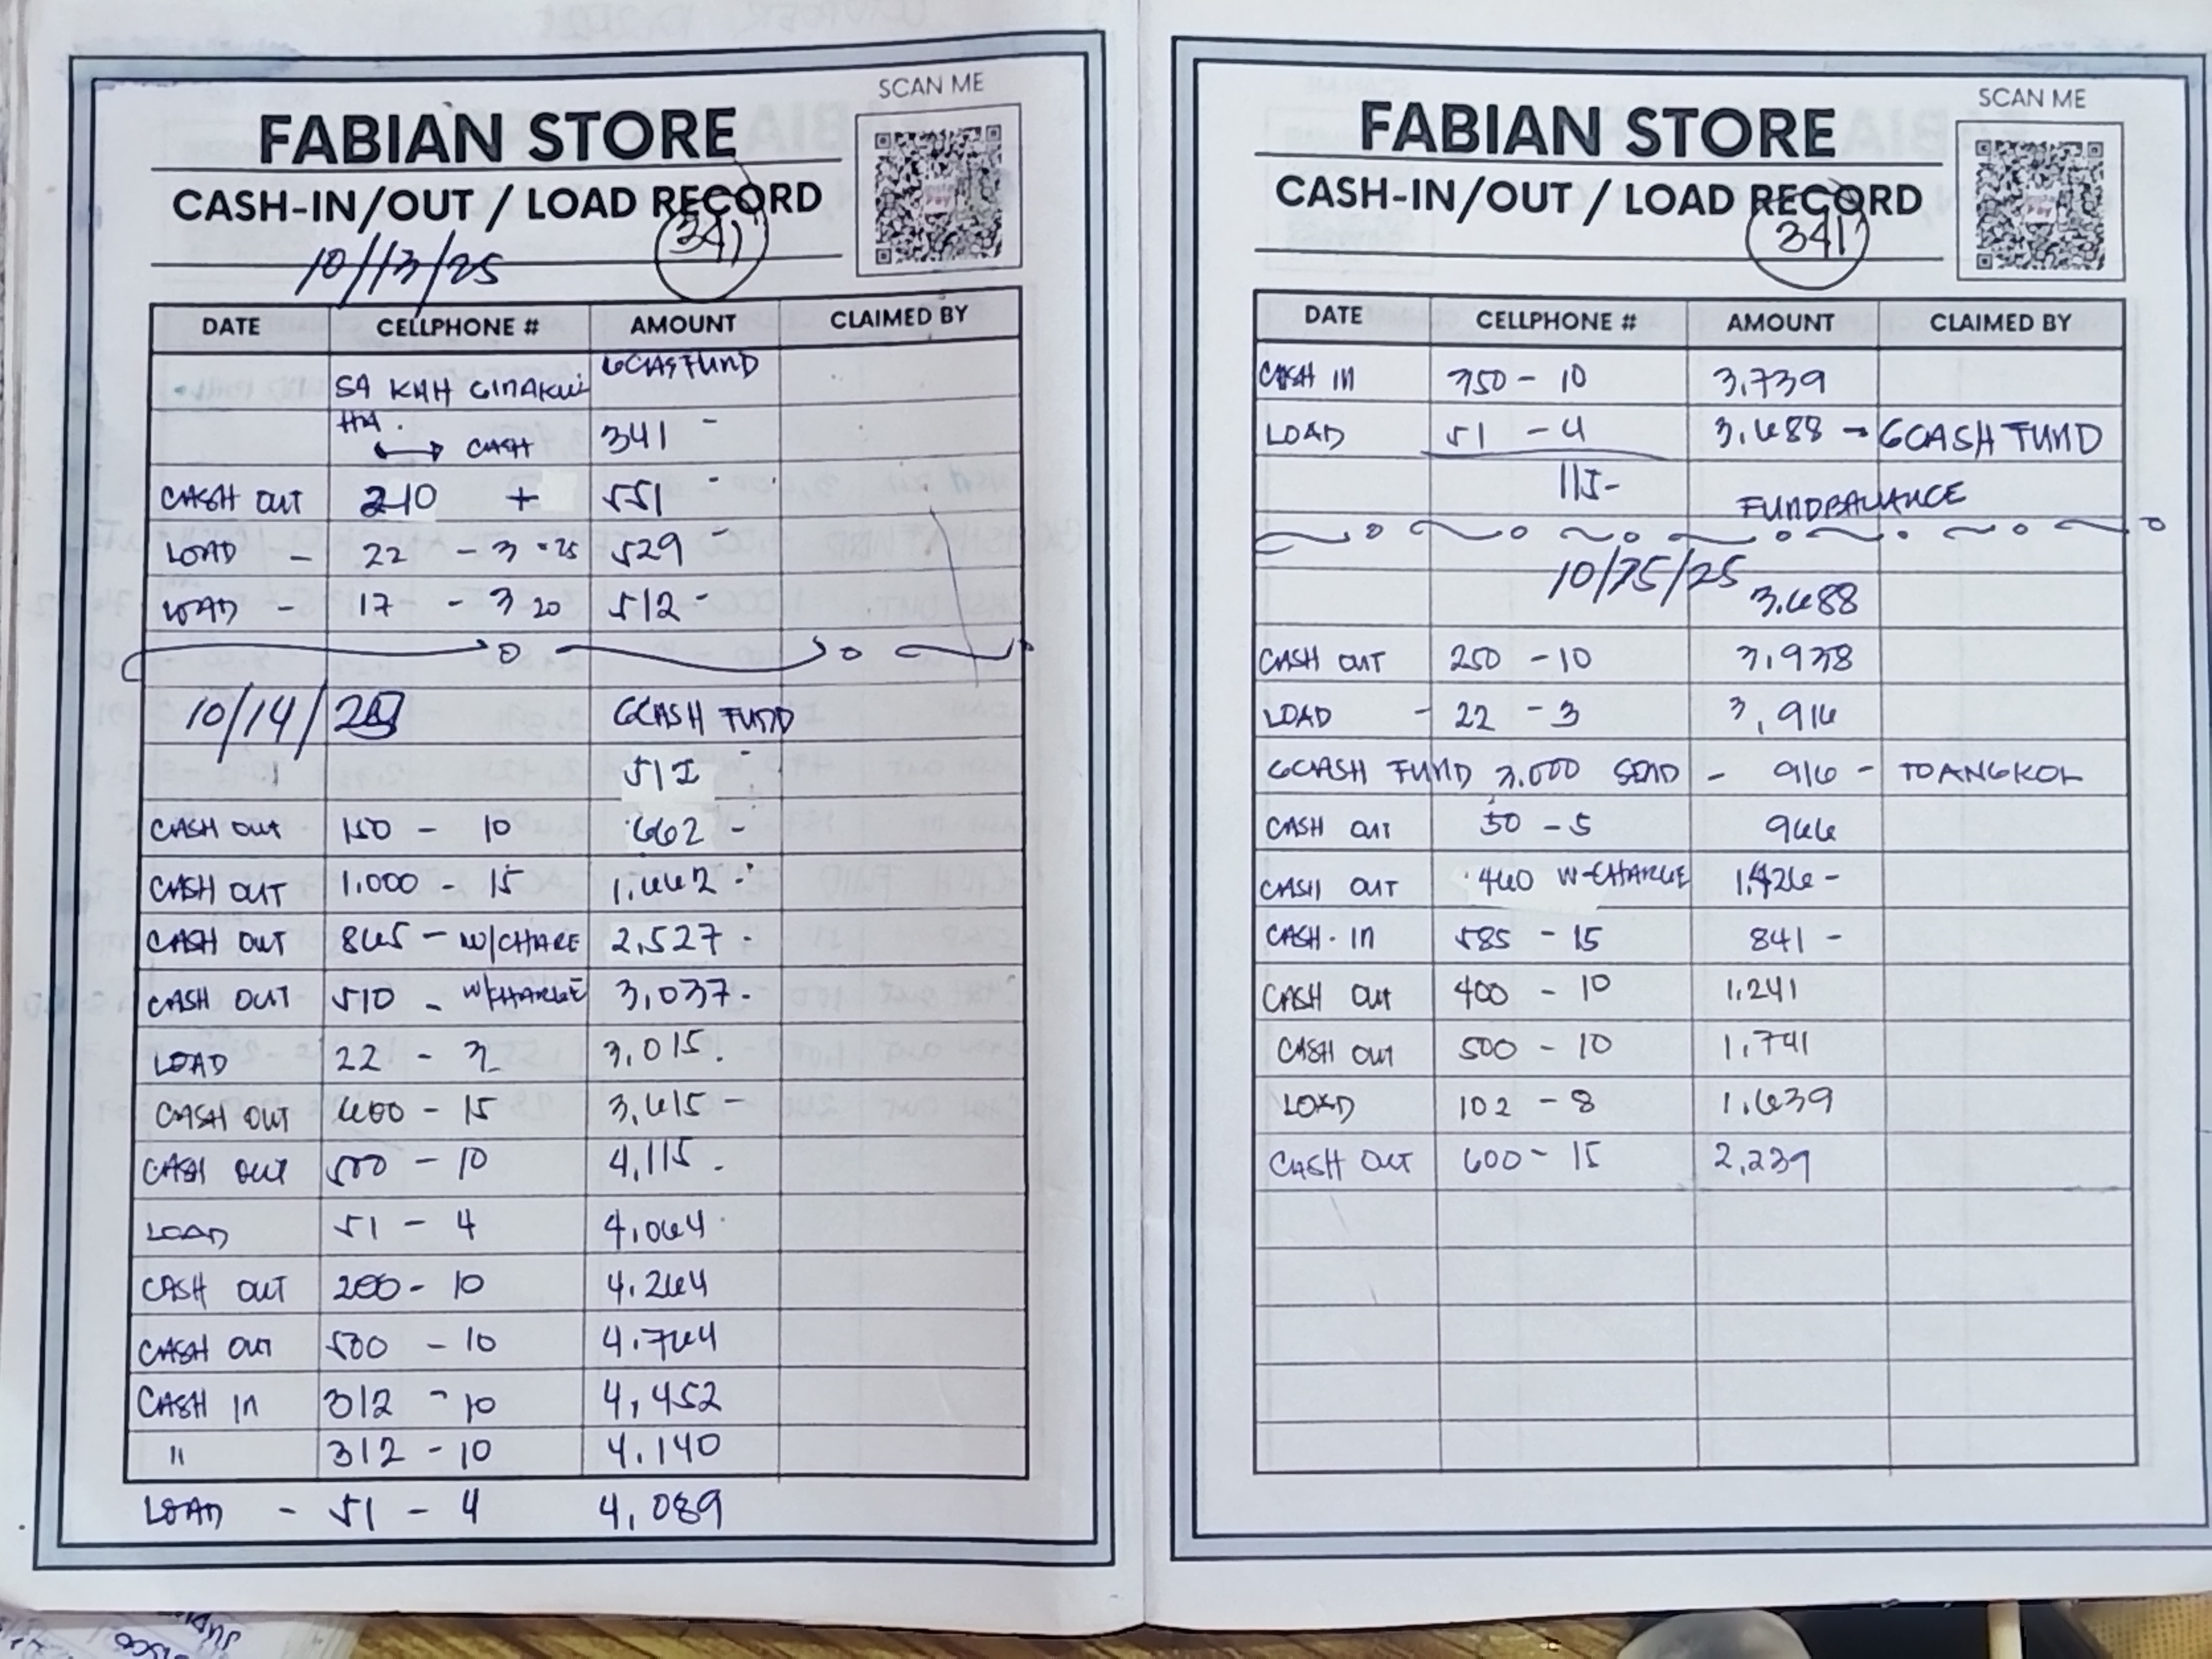 SCAN ME
FABIAN STORE
CASH-IN/OUT / LOAD RECORD
341
10/13/25
DATE CELLPHONE # AMOUNT CLAIMED BY
GCASFUND
SA KAH GINAKUI
HA.
CASH 341 -
CASH OUT 210 + 551 -
LOAD - 22 - 3 25 529 -
LOAD - 17 - 3 20 512 -
10/14/25 GCASH FUND
512 -
CASH OUT 150 - 10 662 -
CASH OUT 1.000 - 15 1.662 -
CASH OUT 865 - W/CHARE 2,527 -
CASH OUT 510 - W/CHARGE 3,037-
LOAD 22 - 3 3,015.
CASH OUT 600 - 15 3,615 -
CASH OUT 500 - 10 4,115 -
LOAD 51 - 4 4,064
CASH OUT 200 - 10 4.264
CASH OUT 500 - 10 4.764
CASH IN 312 - 10 4,452
" 312 - 10 4.140
LOAD - 51 - 4 4,089
SCAN ME
FABIAN STORE
CASH-IN/OUT / LOAD RECORD
341
DATE CELLPHONE # AMOUNT CLAIMED BY
CASH IN 350 - 10 3.739
LOAD 51 - 4 3.688 - GCASH FUND
115-
FUNDBALANCE
10/15/25
3.688
CASH OUT 250 - 10 3,938
LOAD - 22 - 3 3,916
GCASH FUND 3.000 SEND - 916 - TO ANGKOL
CASH OUT 50 - 5 966
CASH OUT 460 W-CHARGE 1,426 -
CASH-IN 585 - 15 841 -
CASH OUT 400 - 10 1.241
CASH OUT 500 - 10 1.741
LOAD 102 - 8 1.639
CASH OUT 600 - 15 2,239